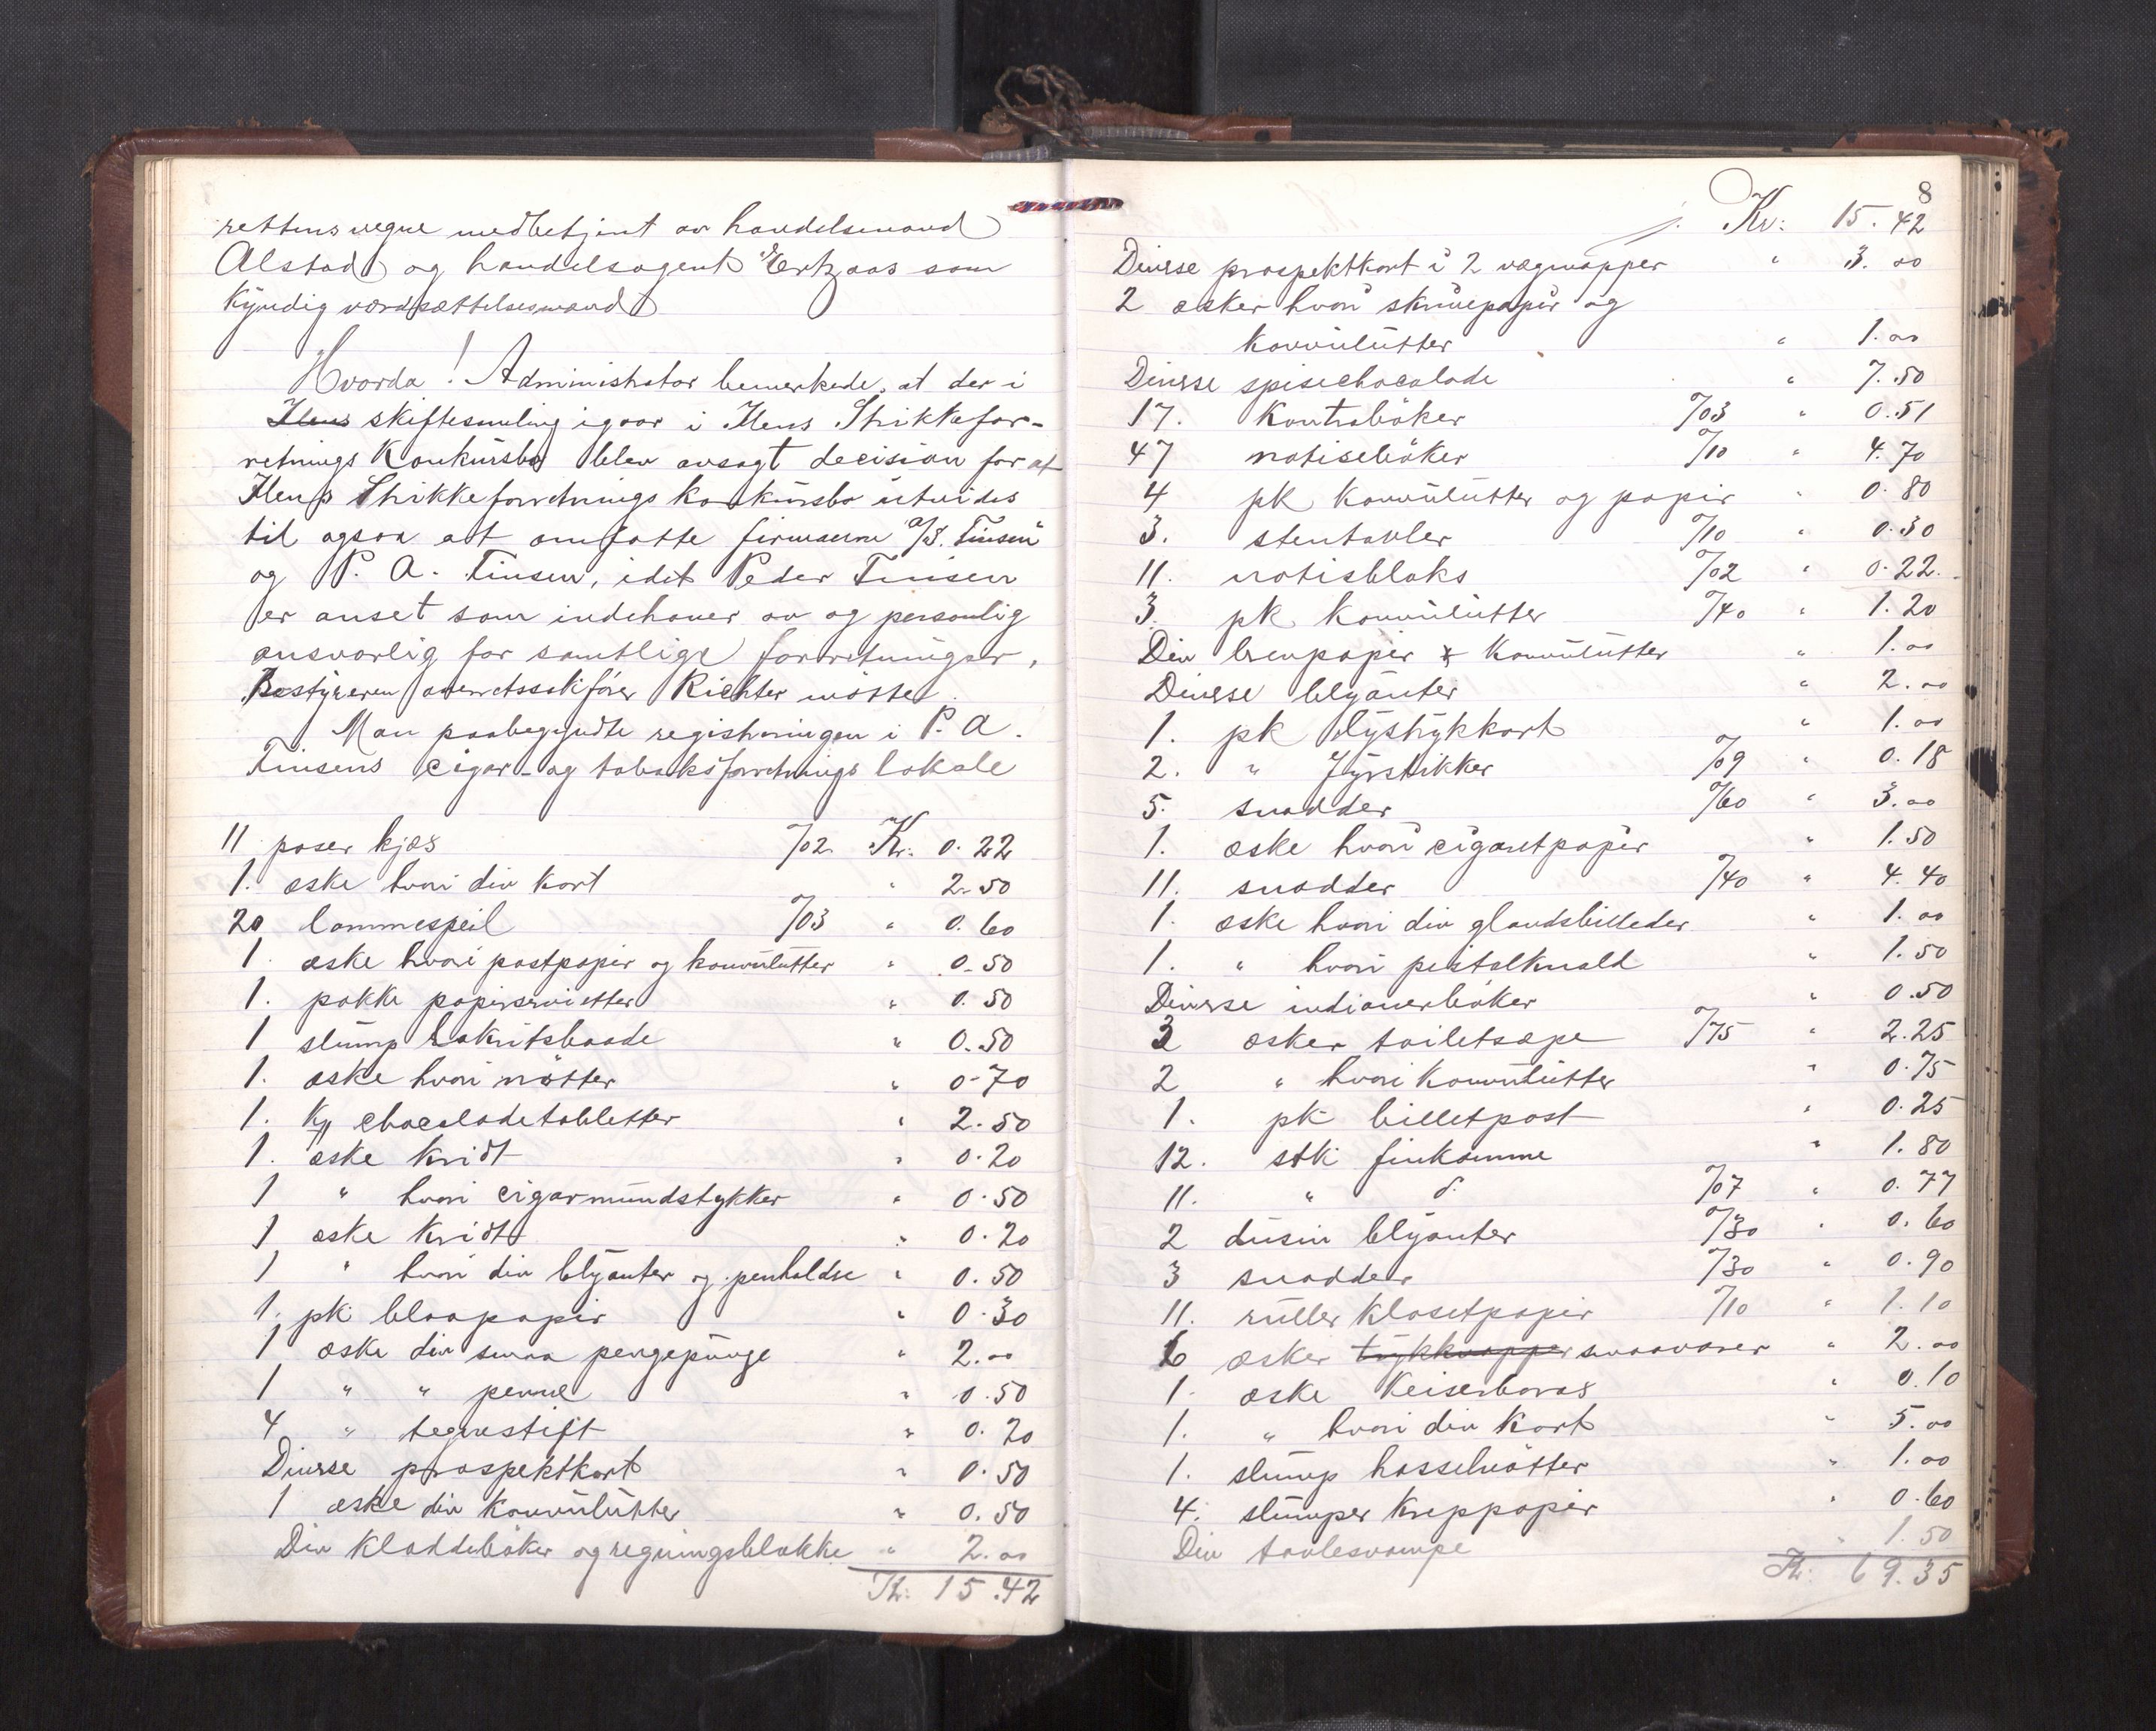 rettens vegne medbetjent av handelsmand
Alstad og handelsagent Ertzaas som
kyndig værdsættelsesmand
Hvorda! Administrator bemerkede, at der i
Ilens skiftesamling igaar i Ilens Strikkefor-
retnings Konkursbo blev avsagt decision for at
Ilens Strikkeforretnings konkursbo utvides
til ogsaa at omfatte firmaerne A/S. Tinsen
og P. A. Tinsen, idet Peder Tinsen
er anset som indehaver av og personlig
ansvarlig for samtlige forretninger.
Bestyreren overretssakfører Richter møtte.
Man paabegyndte registreringen i P. A.
Tinsens cigar- og tobaksforretnings lokale
11 poser kjæs 7/02 Kr. 0.22
1. æske hvori div kort " 2.50
20 lommespeil 7/03 " 0.60
1. æske hvori postpapir og konvulutter " 0.50
1. pakke papirservietter " 0.50
1 slump Lakritsbaade " 0.50
1. æske hvori nøtter " 0.70
1. Kg chocoladetabletter " 2.50
1. æske kridt " 0.20
1 " hvori cigarmundstykker " 0.50
1 æske kridt " 0.20
1 " hvori div blyanter og penholdre " 0.50
1. pk blaapapir " 0.30
1 æske div smaa pengepunge " 2.00
1 " " penne " 0.50
4 " tegnestift " 0.20
Diverse prospektkort " 0.50
1 æske div konvulutter " 0.50
Div kladdebøker og regningsblokke " 2.00
Kr. 15.42
8
Kr: 15.42
Diverse prospektkort i 2 vægmapper " 3.00
2 æsker hvori skrivepapir og
konvulutter " 1.00
Diverse spisechocolade " 7.50
17. Kontrabøker 7/03 " 0.51
47 notisebøker 7/10 " 4.70
4 pk konvulutter og papir " 0.80
3. stentavler 7/10 " 0.30
11. notisbloks 7/02 " 0.22
3. pk konvulutter 7/40 " 1.20
Div brevpapir & Konvulutter " 1.00
Diverse blyanter " 2.00
1. pk lystrykkort " 1.00
2. " fyrstikker 7/09 " 0.18
5. snadder 7/60 " 3.00
1. æske hvori cigaretpapir " 1.50
11. snadder 7/40 " 4.40
1. æske hvori div glandsbilleder " 1.00
1. " hvori pistolknald " 1.50
Diverse indianerbøker " 0.50
3 æsker toiletsæpe 7/75 " 2.25
2 " hvori konvulutter " 0.75
1. pk billetpost " 0.25
12. stk finkamme " 1.80
11. " d. 7/07 " 0.77
2 dusin blyanter 7/30 " 0.60
3 snadder 7/30 " 0.90
11. ruller klosetpapir 7/10 " 1.10
6 æsker trykknapper smaavarer " 2.00
1. æske Keiserborax " 0.10
1. " hvori div kort " 5.00
1. slump hasselnøtter " 1.00
4. slumper kreppapir " 0.60
Div tavlesvampe " 1.50
Kr. 69.35